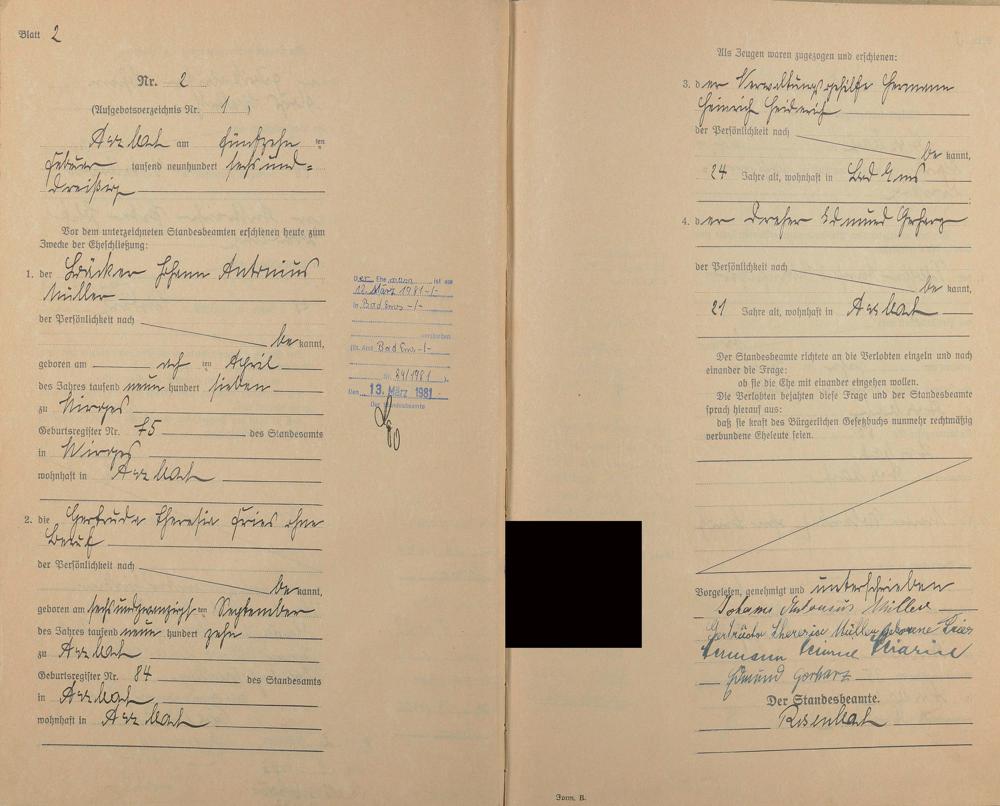 Blatt 2
Nr. 2
(Aufgebotsverzeichnis Nr. 1)
Arzbach am fünfzehn ten
Februar tausend neunhundert sechsund=
dreißig
Vor dem unterzeichneten Standesbeamten erschienen heute zum
Zwecke der Eheschließung:
1. der Bäcker Johann Antonius
Müller
der Persönlichkeit nach
be kannt,
geboren am acht ten April
des Jahres tausend neun hundert sieben
zu Wirges
Geburtsregister Nr. 75 des Standesamts
in Wirges
wohnhaft in Arzbach
2. die Gertruda Theresia Fries ohne
Beruf
der Persönlichkeit nach
be kannt,
geboren am sechsundzwanzigst ten September
des Jahres tausend neun hundert zehn
zu Arzbach
Geburtsregister Nr. 84 des Standesamts
in Arzbach
wohnhaft in Arzbach
Der Ehemann ist am
12. März 1981 -/-
in Bad Ems -/-
verstorben
(St. Amt Bad Ems -/-
Nr. 34/1981 ).
Den 13. März 1981
Der Standesbeamte
Als Zeugen waren zugezogen und erschienen:
3. der Verwaltungsgehilfe Hermann
Heinrich Heiderich
der Persönlichkeit nach
be kannt,
24 Jahre alt, wohnhaft in Bad Ems
4. der Dreher Edmund Gerharz
der Persönlichkeit nach
be kannt,
21 Jahre alt, wohnhaft in Arzbach
Der Standesbeamte richtete an die Verlobten einzeln und nach
einander die Frage:
ob sie die Ehe mit einander eingehen wollen.
Die Verlobten bejahten diese Frage und der Standesbeamte
sprach hierauf aus:
daß sie kraft des Bürgerlichen Gesetzbuchs nunmehr rechtmäßig
verbundene Eheleute seien.
Vorgelesen, genehmigt und unterschrieben
Johann Antonius Müller
Gertruda Theresia Müller geborene Fries
Hermann
Edmund Gerharz
Der Standesbeamte.
Rosenbach
Form. B.